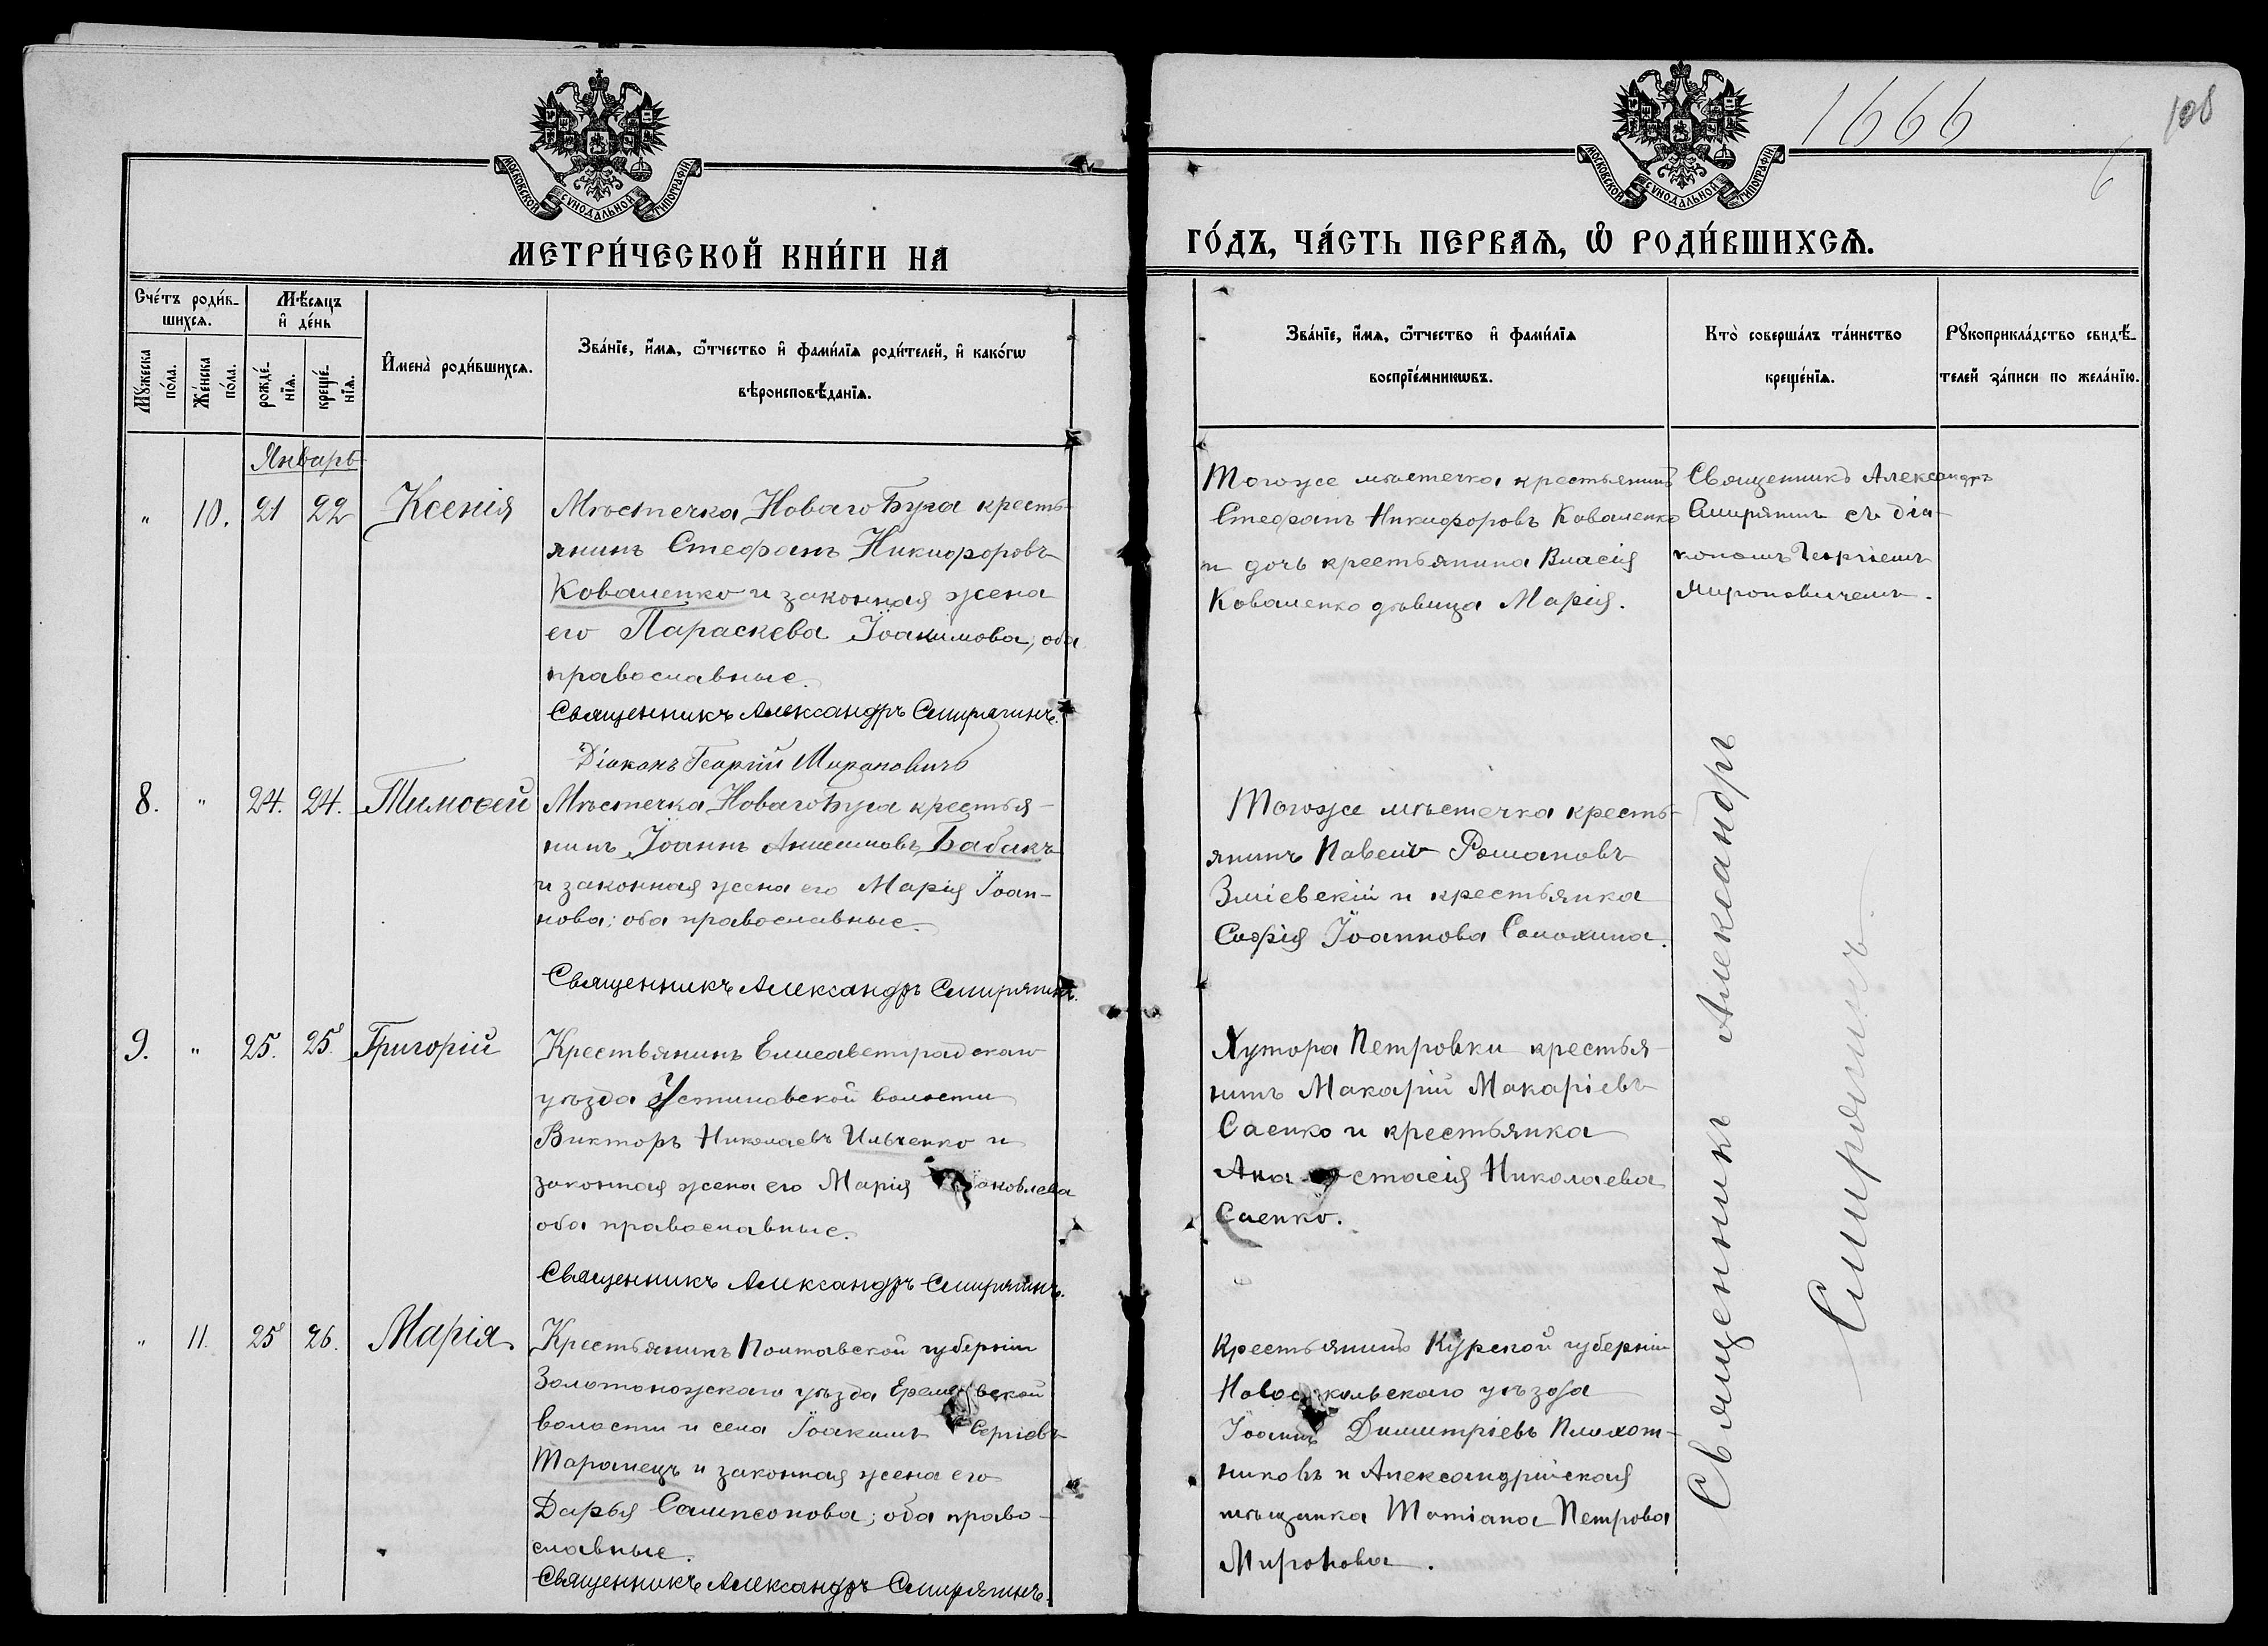 1666
108
6
МОСКОВСКОЙ СѴНОДАЛЬНОЙ ТИПОГРАФІИ
МОСКОВСКОЙ СѴНОДАЛЬНОЙ ТИПОГРАФІИ
МЕТРИ́ЧЕСКОЙ КНИ́ГИ НА
ГО́ДЪ, ЧА́СТЬ ПЕРВАѦ, Ѽ РОДИ́ВШИХСѦ.
Сче́тъ роди́в-
шихсѧ.
Мѣ́сяцъ
и҆ де́нь
Мꙋ́жеска
по́ла.
Же́нска
по́ла.
рожде́-
нїѧ.
креще́-
нїѧ.
И҆мена̀ роди́вшихсѧ.
Зва́нїе, и҆́мѧ, ѻ҆́тчество и҆ фами́лїѧ роди́телей, и҆ како́гѡ
вѣроисповѣ́данїѧ.
Зва́нїе, и҆́мѧ, ѻ҆́тчество и҆ фами́лїѧ
воспрїе́мникѡвъ.
Кто̀ соверша́лъ та́инство
креще́нїѧ.
Рꙋкоприкла́дство свидѣ́-
телей за́писи по жела́нїю.
Январь
" 10. 21 22 Ксенія
Мѣстечка Новаго Буга кресть-
янинъ Стефанъ Никифоровъ
Коваленко и законная жена
его Параскева Іоакимова, оба
православные.
Священникъ Александръ Смирягинъ.
Діаконъ Георгій Мироновичъ
Тогоже мѣстечка крестьянинъ
Стефанъ Никифоровъ Коваленко
и дочь крестьянина Власія
Коваленко дѣвица Марія.
Священникъ Александръ
Смирягинъ съ діа-
кономъ Георгіемъ
Мироновичемъ.
8. " 24. 24. Тимоѳей
Мѣстечка Новаго Буга крестья-
нинъ Іоаннъ Анисимовъ Бабакъ
и законная жена его Марія Іоан-
нова; оба православные.
Священникъ Александръ Смирягинъ.
Тогоже мѣстечка кресть-
янинъ Павелъ Романовъ
Зміевскій и крестьянка
Софія Іоаннова
9. " 25. 25. Григорій
Крестьянинъ Елисаветградскаго
уѣзда Устиновской волости
Викторъ Николаевъ Ильченко и
законная жена его Марія Яковлева
оба православные.
Священникъ Александръ Смирягинъ.
Хутора Петровки крестья-
нинъ Макарій Макаріевъ
Саенко и крестьянка
Анастасія Николаева
Саенко.
" 11. 25 26. Марія
Крестьянинъ Полтавской губерніи
Золотоножскаго уѣзда Еремѣевской
волости и села Іоакимъ Сергіевъ
Таранецъ и законная жена его
Дарья Сампсонова; оба право-
славные.
Священникъ Александръ Смирягинъ.
Крестьянинъ Курской губерніи
Новооскольскаго уѣзда
Іоаннъ Димитріевъ Плохот-
никовъ и Александрійская
мѣщанка Татіана Петрова
Миронова.
Священникъ Александръ
Смирягинъ.